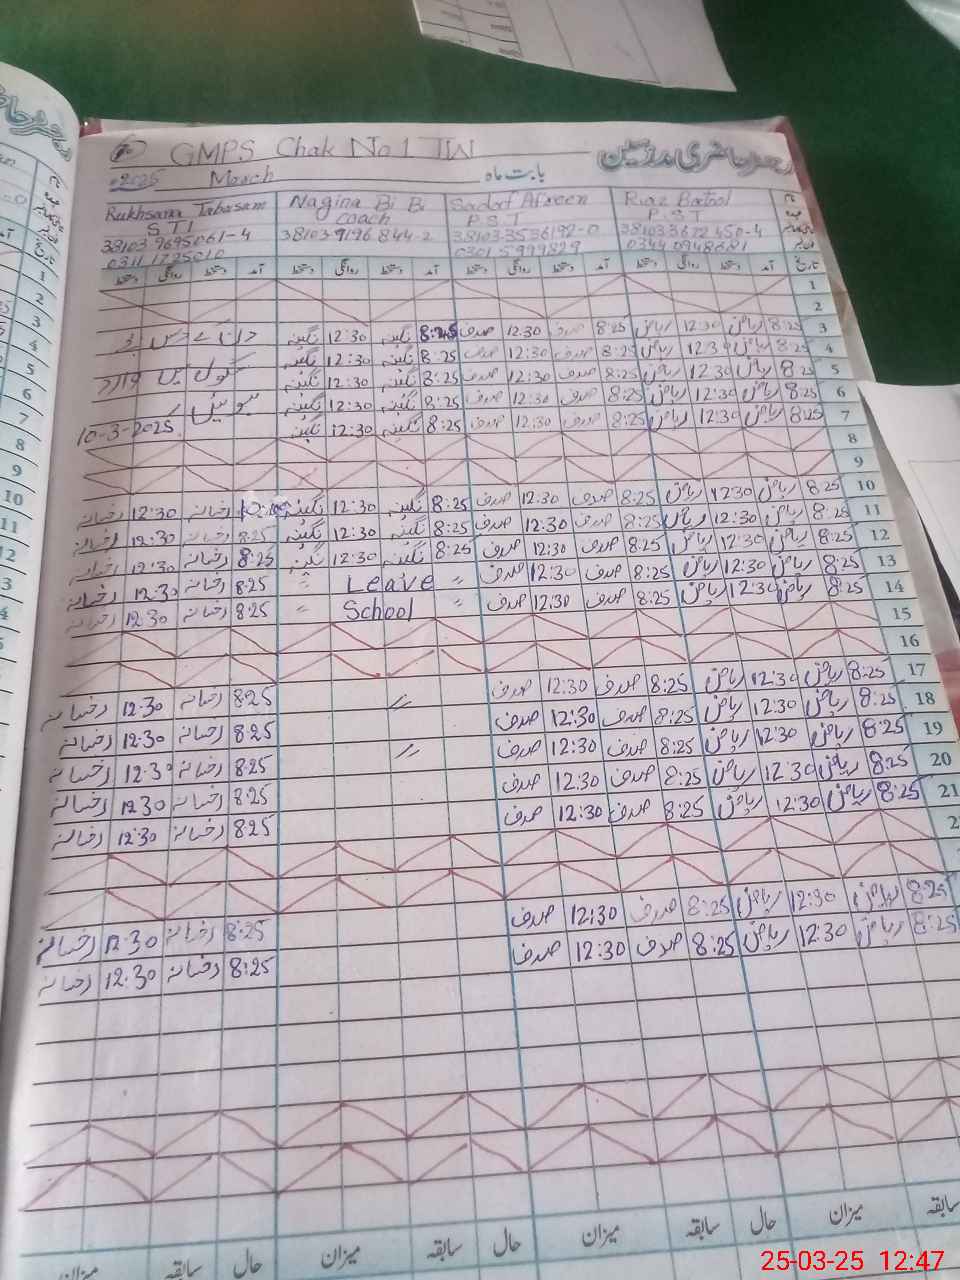 رجسٹر حاضری مدرسین
GMPS Chak No 1 TW
2025 March بابت ماہ
Rukhsana Tabasam Nagina Bi Bi Sadaf Afreen Riaz Batool
STI Coach P.S.T P.S.T
38103-9196844-2 38103-3536192-0
0301 5999829 0344 0948681
تاریخ آمد دستخط روانگی دستخط آمد دستخط روانگی دستخط آمد دستخط روانگی دستخط آمد دستخط روانگی دستخط
1
2
3 8:25 ریاض 12:30 ریاض 8:25 صدف 12:30 صدف 8:25 نگینہ 12:30 نگینہ
4 8:25 ریاض 12:30 ریاض 8:25 صدف 12:30 صدف 8:25 نگینہ 12:30 نگینہ
5 8:25 ریاض 12:30 ریاض 8:25 صدف 12:30 صدف 8:25 نگینہ 12:30 نگینہ
6 8:25 ریاض 12:30 ریاض 8:25 صدف 12:30 صدف 8:25 نگینہ 12:30 نگینہ
7 8:25 ریاض 12:30 ریاض 8:25 صدف 12:30 صدف 8:25 نگینہ 12:30 نگینہ 10-3-2025
8
9
10 8:25 ریاض 12:30 ریاض 8:25 صدف 12:30 صدف 8:25 نگینہ 12:30 نگینہ رخسانہ 12:30 رخسانہ
11 8:25 ریاض 12:30 ریاض 8:25 صدف 12:30 صدف 8:25 نگینہ 12:30 نگینہ 8:25 رخسانہ 12:30 رخسانہ
12 8:25 ریاض 12:30 ریاض 8:25 صدف 12:30 صدف 8:25 نگینہ 12:30 نگینہ 8:25 رخسانہ 12:30 رخسانہ
13 8:25 ریاض 12:30 ریاض 8:25 صدف 12:30 صدف " Leave " 8:25 رخسانہ 12:30 رخسانہ
14 8:25 ریاض 12:30 ریاض 8:25 صدف 12:30 صدف " School " 8:25 رخسانہ 12:30 رخسانہ
15
16
17 8:25 ریاض 12:30 ریاض 8:25 صدف 12:30 صدف " 8:25 رخسانہ 12:30 رخسانہ
18 8:25 ریاض 12:30 ریاض 8:25 صدف 12:30 صدف 8:25 رخسانہ 12:30 رخسانہ
19 8:25 ریاض 12:30 ریاض 8:25 صدف 12:30 صدف " 8:25 رخسانہ 12:30 رخسانہ
20 8:25 ریاض 12:30 ریاض 8:25 صدف 12:30 صدف 8:25 رخسانہ 12:30 رخسانہ
21 8:25 ریاض 12:30 ریاض 8:25 صدف 12:30 صدف 8:25 رخسانہ 12:30 رخسانہ
8:25 ریاض 12:30 ریاض 8:25 صدف 12:30 صدف 8:25 رخسانہ 12:30 رخسانہ
8:25 ریاض 12:30 ریاض 8:25 صدف 12:30 صدف 8:25 رخسانہ 12:30 رخسانہ
سابقہ میزان حال سابقہ میزان حال سابقہ میزان حال سابقہ میزان
25-03-25 12:47